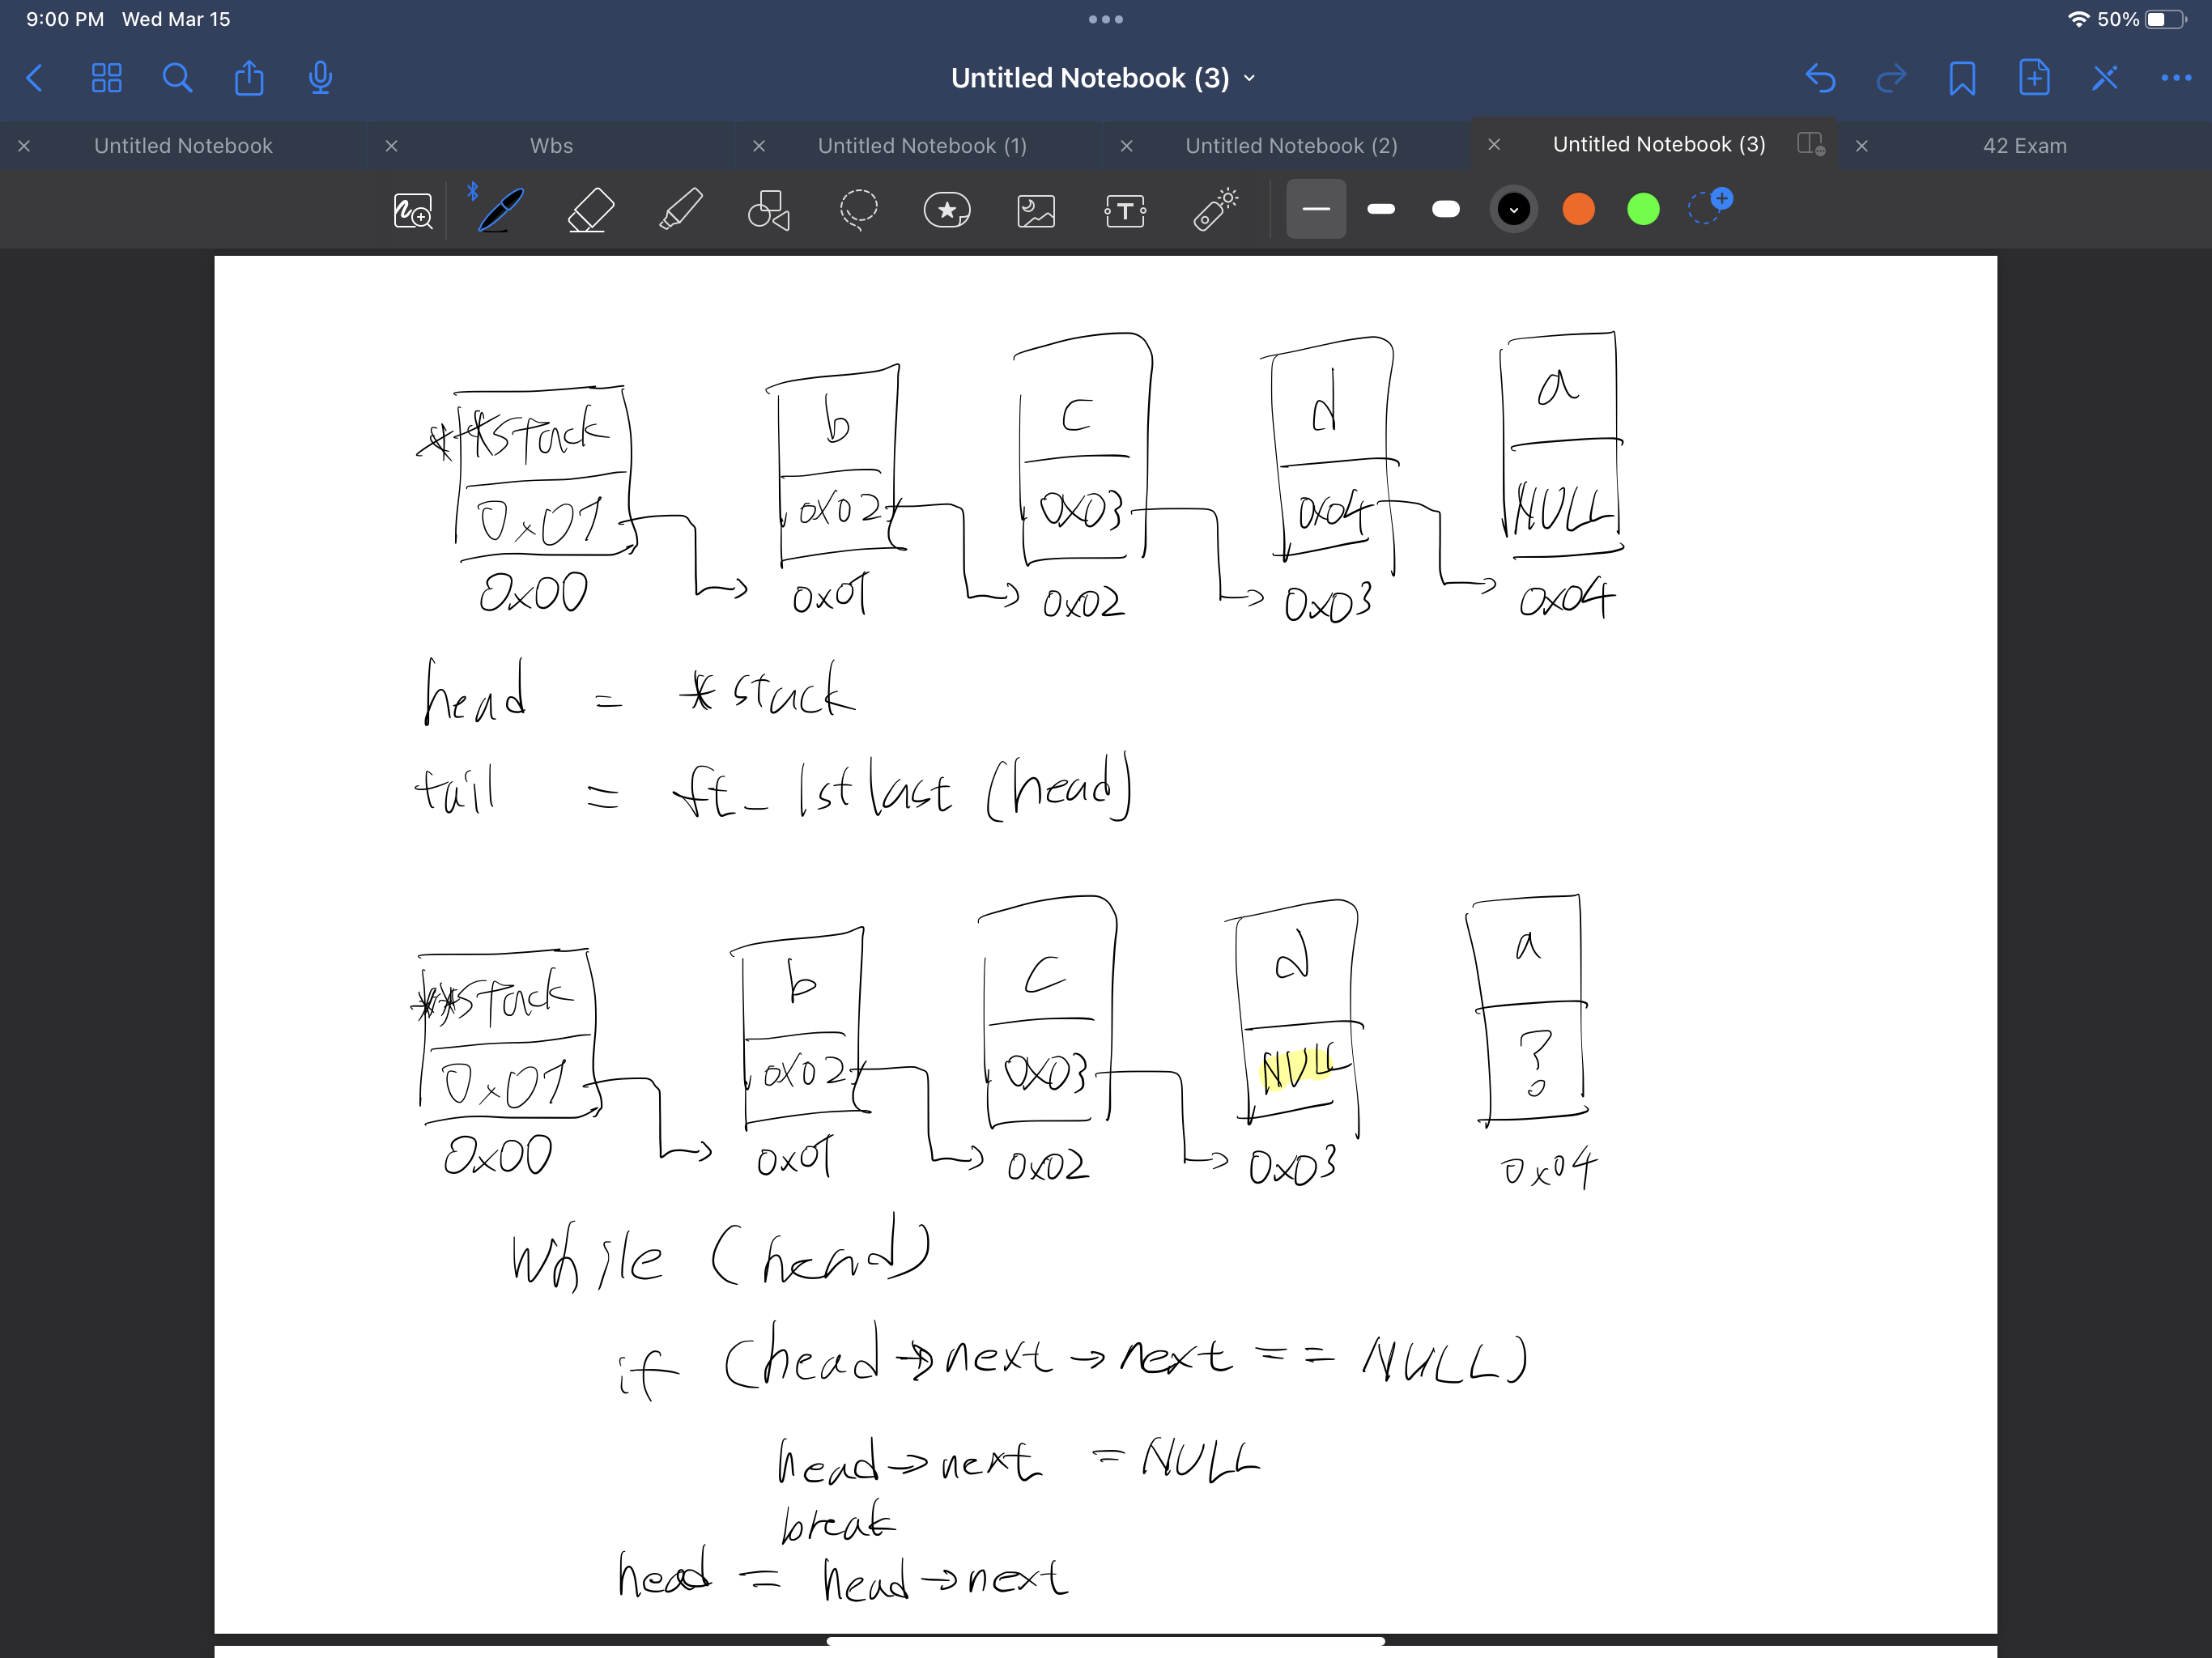 9:00 PM Wed Mar 15
50%
Untitled Notebook (3)
Untitled Notebook
Wbs
Untitled Notebook (1)
Untitled Notebook (2)
Untitled Notebook (3)
42 Exam
T
**stack b c d a
0x01 0x02 0x03 0x04 NULL
0x00 0x01 0x02 0x03 0x04
head = *stack
tail = ft_lstlast (head)
**stack b c d a
0x01 0x02 0x03 NULL ?
0x00 0x01 0x02 0x03 0x04
while (head)
if (head→next→next == NULL)
head→next = NULL
break
head = head→next